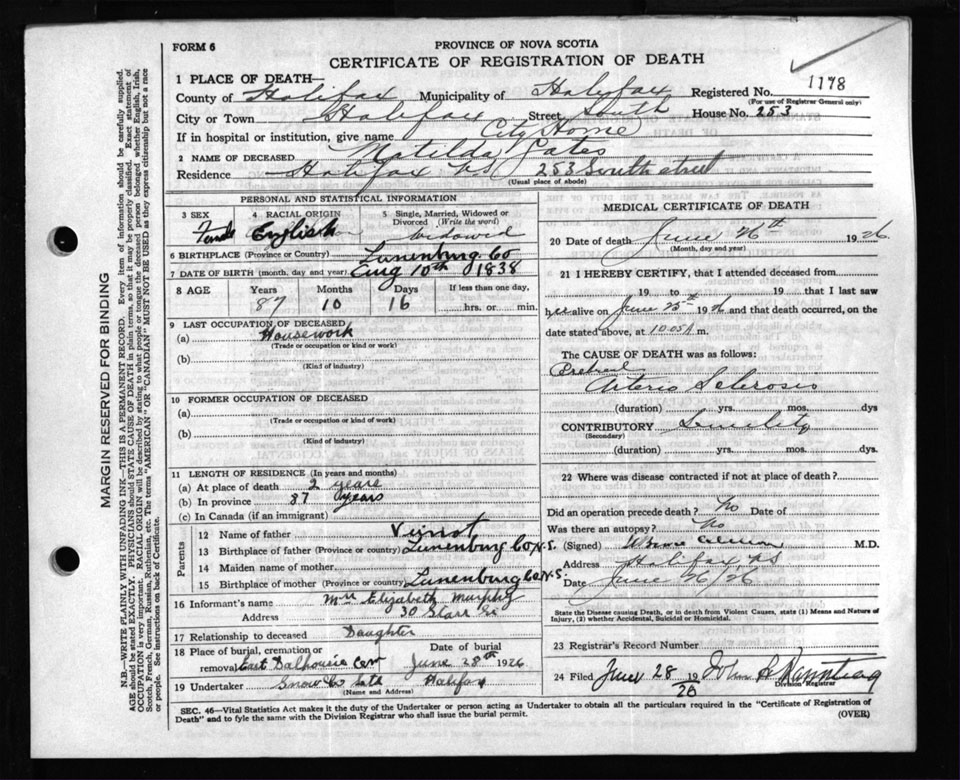 FORM 6
PROVINCE OF NOVA SCOTIA
CERTIFICATE OF REGISTRATION OF DEATH
1178
1 PLACE OF DEATH—
County of Halifax Municipality of Halifax Registered No.
(For use of Registrar General only)
City or Town Halifax Street South House No. 253
If in hospital or institution, give name City Home
2 NAME OF DECEASED Matilda Gates
Residence Halifax NS 253 South street
(Usual place of abode)
PERSONAL AND STATISTICAL INFORMATION
3 SEX 4 RACIAL ORIGIN 5 Single, Married, Widowed or Divorced (Write the word)
English widowed
6 BIRTHPLACE (Province or Country) Lunenburg Co
7 DATE OF BIRTH (month, day and year) Aug 10th 1838
8 AGE Years Months Days If less than one day,
87 10 16 hrs. or min.
9 LAST OCCUPATION OF DECEASED
(a) Housework
(Trade or occupation or kind or work)
(b)
(Kind of industry)
10 FORMER OCCUPATION OF DECEASED
(a)
(Trade or occupation or kind of work)
(b)
(Kind of industry)
11 LENGTH OF RESIDENCE (In years and months)
(a) At place of death 2 years
(b) In province 87 years
(c) In Canada (if an immigrant)
Parents
12 Name of father
13 Birthplace of father (Province or country) Lunenburg Co N.S.
14 Maiden name of mother
15 Birthplace of mother (Province or country) Lunenburg Co N.S.
16 Informant's name Mrs Elizabeth Murphy
Address 30 Starr
17 Relationship to deceased Daughter
18 Place of burial, cremation or removal East Dalhousie Cem Date of burial June 28th 1926
19 Undertaker Snow Co Ltd Halifax
(Name and Address)
MEDICAL CERTIFICATE OF DEATH
20 Date of death June 26th 1926
(Month, day and year)
21 I HEREBY CERTIFY, that I attended deceased from
19 to 19 that I last saw
h alive on June 25th 1926 and that death occurred, on the
date stated above, at 10.05 A m.
The CAUSE OF DEATH was as follows:
Arterio Sclerosis
(duration) yrs. mos. dys
CONTRIBUTORY Senility
(Secondary)
(duration) yrs. mos. dys.
22 Where was disease contracted if not at place of death?
Did an operation precede death? No Date of
Was there an autopsy? No
(Signed) M.D.
Address Halifax NS
Date June 26/26
State the Disease causing Death, or in death from Violent Causes, state (1) Means and Nature of Injury, (2) whether Accidental, Suicidal or Homicidal.
23 Registrar's Record Number
24 Filed June 28 19 26 John
Division Registrar
SEC. 46—Vital Statistics Act makes it the duty of the Undertaker or person acting as Undertaker to obtain all the particulars required in the "Certificate of Registration of
Death" and to fyle the same with the Division Registrar who shall issue the burial permit. (OVER)
MARGIN RESERVED FOR BINDING
N.B.—WRITE PLAINLY WITH UNFADING INK—THIS IS A PERMANENT RECORD. Every item of information should be carefully supplied.
AGE should be stated EXACTLY. PHYSICIANS should STATE CAUSE OF DEATH in plain terms, so that it may be properly classified. Exact statement of
OCCUPATION is very important. RACIAL ORIGIN will be described by stating to what people or tongue the deceased person belonged whether English, Irish,
Scotch, French, German, Russian, Ruthenian, etc. The terms "AMERICAN" or "CANADIAN" MUST NOT BE USED as they express citizenship but not a race
people. See instructions on back of Certificate.